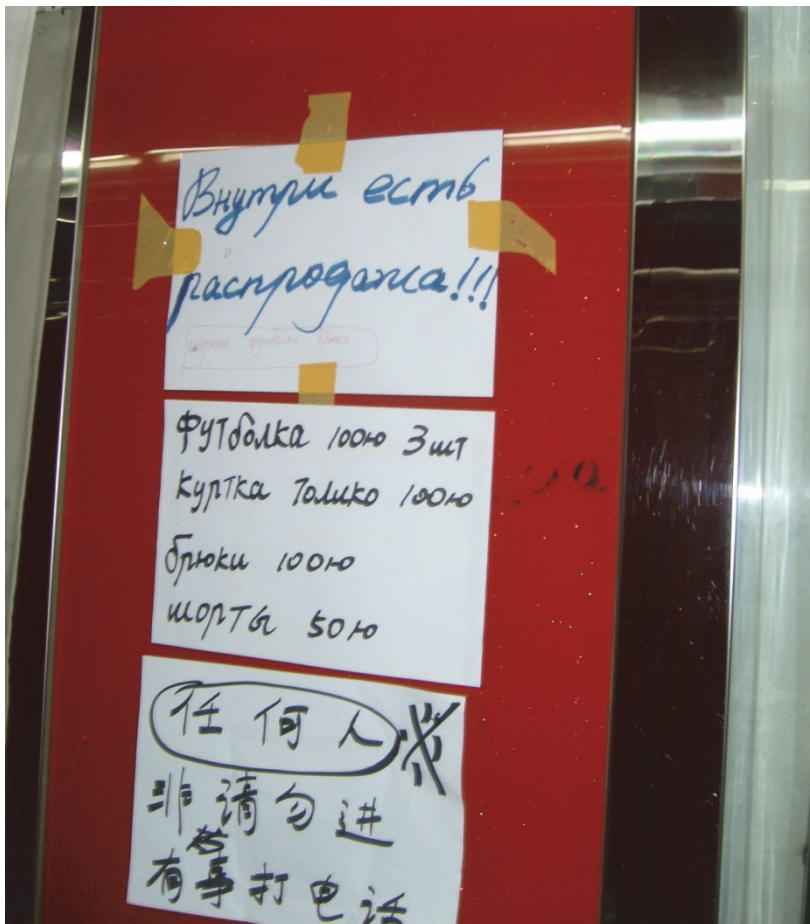 Внутри есть
распродажа!!!
шорты. футболки. брюки
футболка 100ю 3 шт
куртка толико 100ю
брюки 100ю
шорты 50ю
任何人
非请勿进
有事打电话